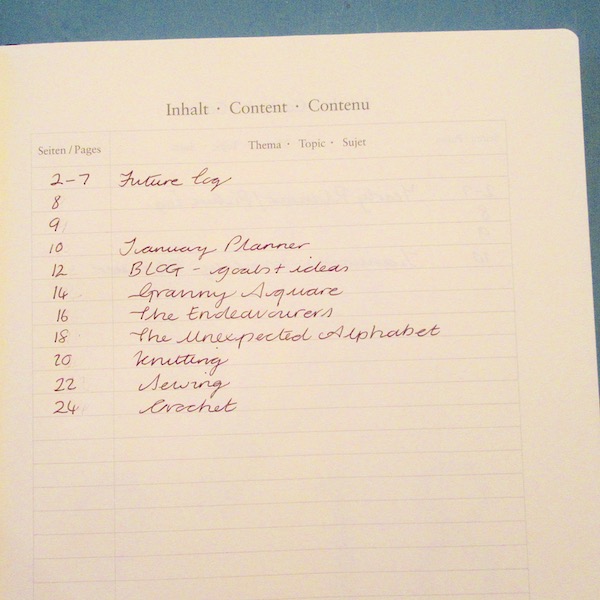 Inhalt · Content · Contenu
Seiten / Pages Thema · Topic · Sujet
2-7 Future log
8
9
10 January Planner
12 BLOG - goals + ideas
14 Granny Square
16 The Endeavourers
18 The Unexpected Alphabet
20 Knitting
22 Sewing
24 Crochet